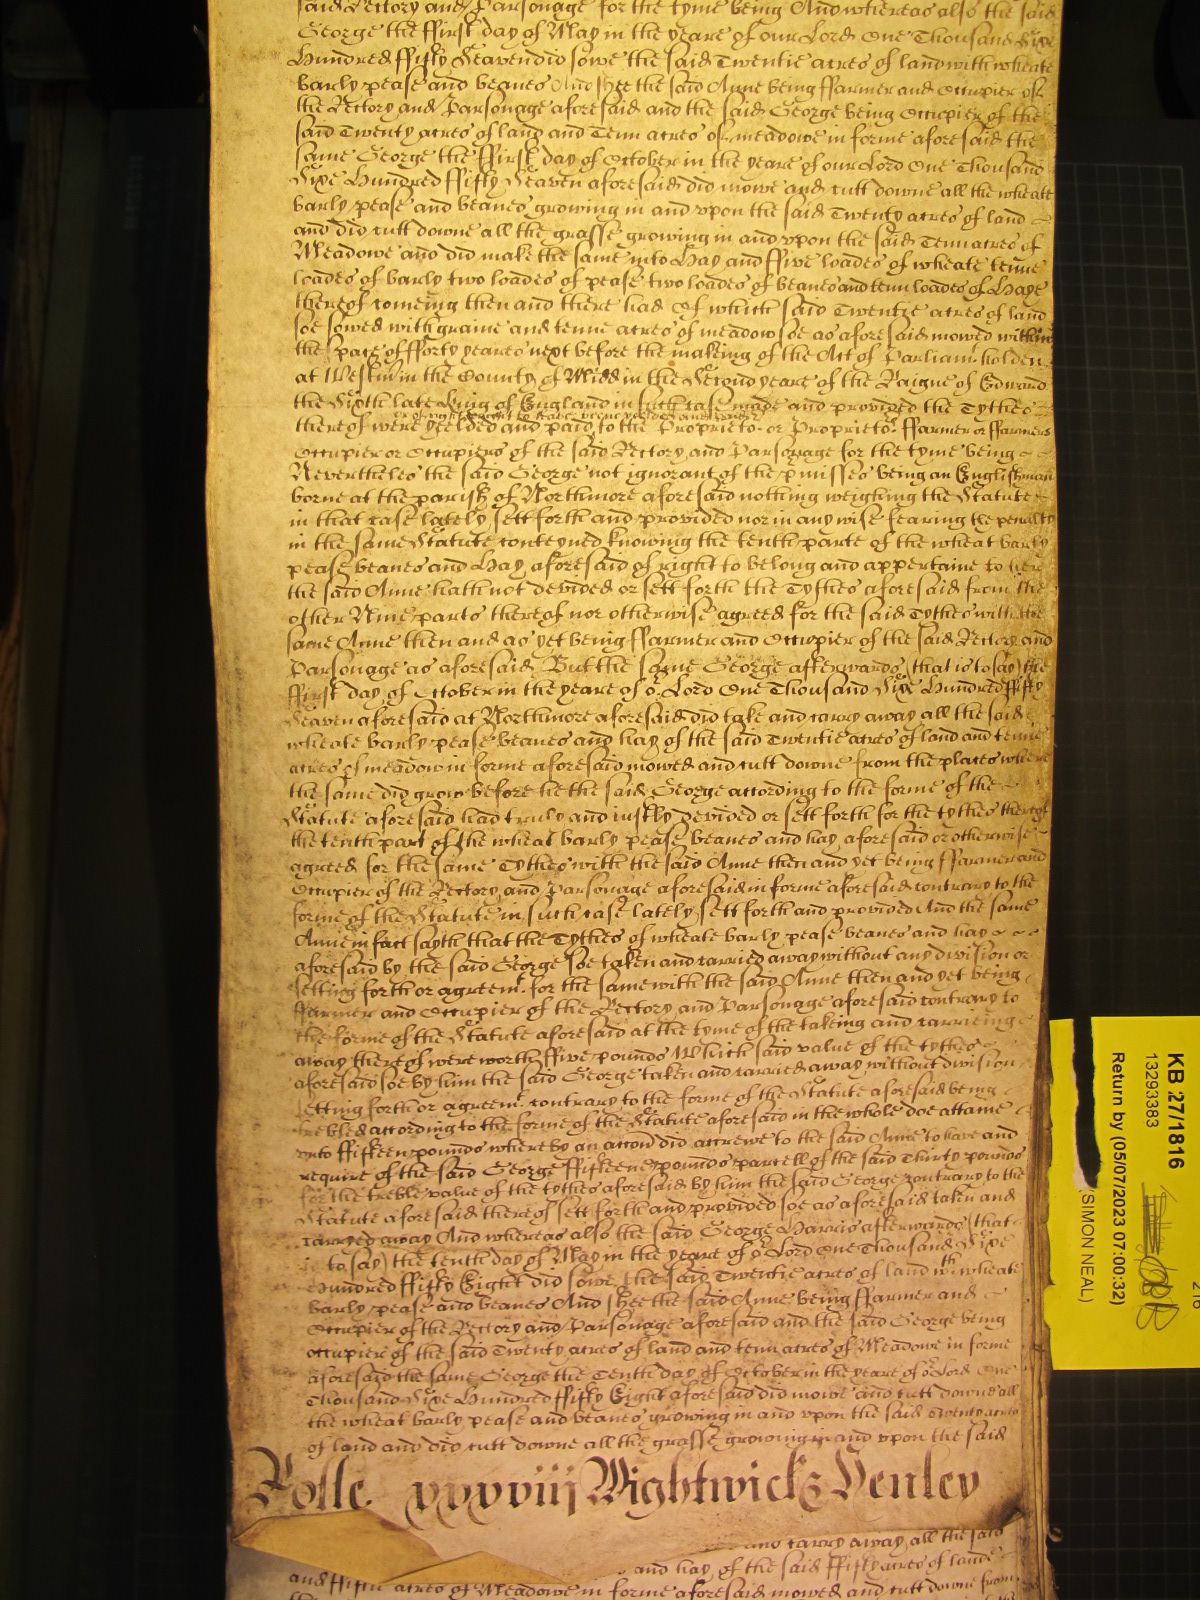 said Rectory and Parsonage for the tyme being And whereas also the said
George the ffirst day of May in the yeare of our Lord One Thousand Sixe
Hundred ffifty Seaven did sowe the said Twentie acres of land with wheate
barly pease and beanes And shee the said Anne being ffarmer and Occupier of
the Rectory and Parsonage aforesaid and the said George being Occupier of the
said Twenty acres of land and Tenn acres of meadowe in forme aforesaid the
same George the ffirst day of October in the yeare of our Lord One Thousand
Sixe Hundred ffifty Seaven aforesaid did mowe and cutt downe all the wheate
barly pease and beanes growing in and vpon the said Twenty acres of land
and did cutt downe all the grasse growing in and vpon the said Tenn acres of
Meadowe and did make the same into Hay and ffive loades of wheate tenne
loades of barly two loades of pease two loades of beanes and tenn loades of Haye
thereof comeing then and there had Of which said Twentie acres of land
soe sowed with graine and tenne acres of meadow soe as aforesaid mowed within
the space of fforty yeares next before the making of the Act of Parliam. holden
at Westm in the County of Midd in the Second yeare of the Raigne of Edward
the Sixth late King of England in such case made and provided the Tythes
thereof were yeilded and paid to the Proprieto. or Proprieto. ffarmer or ffarmers
Occupier or Occupiers of the said Rectory and Parsonage for the tyme being
Neverthelesse the said George not ignorant of the p'misses being an Englishman
borne at the parish of Northmore aforesaid nothing weighing the Statute
in that case lately sett forth and provided nor in any wise fearing the penalty
in the same Statute conteyned knowing the tenth parte of the wheat barly
pease beanes and Hay aforesaid of right to belong and appertaine to her
the said Anne hath not devided or sett forth the Tythes aforesaid from the
other Nine parts thereof nor otherwise agreed for the said Tythes with the
same Anne then and as yet being ffarmer and Occupier of the said Rectory and
Parsonage as aforesaid But the same George afterwards (that is to say) the
ffirst day of October in the yeare of o.r Lord One Thousand Sixe Hundred ffifty
Seaven aforesaid at Northmore aforesaid did take and carry away all the said
wheate barly pease beanes and hay of the said Twentie acres of land and tenne
acres of meadow in forme aforesaid mowed and cutt downe from the places where
the same did grow before he the said George according to the forme of the
Statute aforesaid had truly and iustly devided or sett forth for the tythes thereof
the tenth part of the wheat barly pease beanes and hay aforesaid or otherwise
agreed for the same Tythes with the said Anne then and yet being ffarmer and
Occupier of the Rectory and Parsonage aforesaid in forme aforesaid contrary to the
forme of the Statute in such case lately sett forth and provided And the same
Anne in fact sayth that the Tythes of wheate barly pease beanes and hay
aforesaid by the said George soe taken and carried away without any division or
setting forth or agreem.t for the same with the said Anne then and yet being
ffarmer and Occupier of the Rectory and Parsonage aforesaid contrary to
the forme of the Statute aforesaid at the tyme of the taking and carrieing
away thereof were worth ffive pounds Which said value of the tythes
aforesaid soe by him the said George taken and carried away without division
setting forth or agreem.t contrary to the forme of the Statute aforesaid being
trebled according to the forme of the Statute aforesaid in the whole doe attaine
vnto ffifteen pounds whereby an accon did accrewe to the said Anne to have and
require of the said George ffifteene pounds parcell of the said Thirty pounds
for the treble value of the tythes aforesaid by him the said George contrary to the
Statute aforesaid thereof sett forth and provided soe as aforesaid taken and
carryed away And whereas also the said George Harris afterwards (that
is to say) the tenth day of May in the yeare of o.r Lord One Thousand Sixe
Hundred ffifty Eight did sowe the said Twentie acres of land w.th wheate
barly pease and beanes And shee the said Anne being ffarmer and
Occupier of the Rectory and Parsonage aforesaid and the said George being
occupier of the said Twenty acres of land and tenn acres of Meadowe in forme
aforesaid the same George the Tenth day of October in the yeare of o.r Lord One
Thousand Sixe Hundred ffifty Eight aforesaid did mowe and cutt downe all
the wheat barly pease and beanes growing in and vpon the said Twenty acres
of land and did cutt downe all the grasse growing in and vpon the said
Rolle. xxxxviij Wightwick & Henley
and carry away all the said
and hay of the said ffifty acres of lande
and ffiftn acres of Meadowe in forme aforesaid mowed and cutt downe from
KB 27/1816
13293383
Return by (05/07/2023 07:00:32)
(SIMON NEAL)